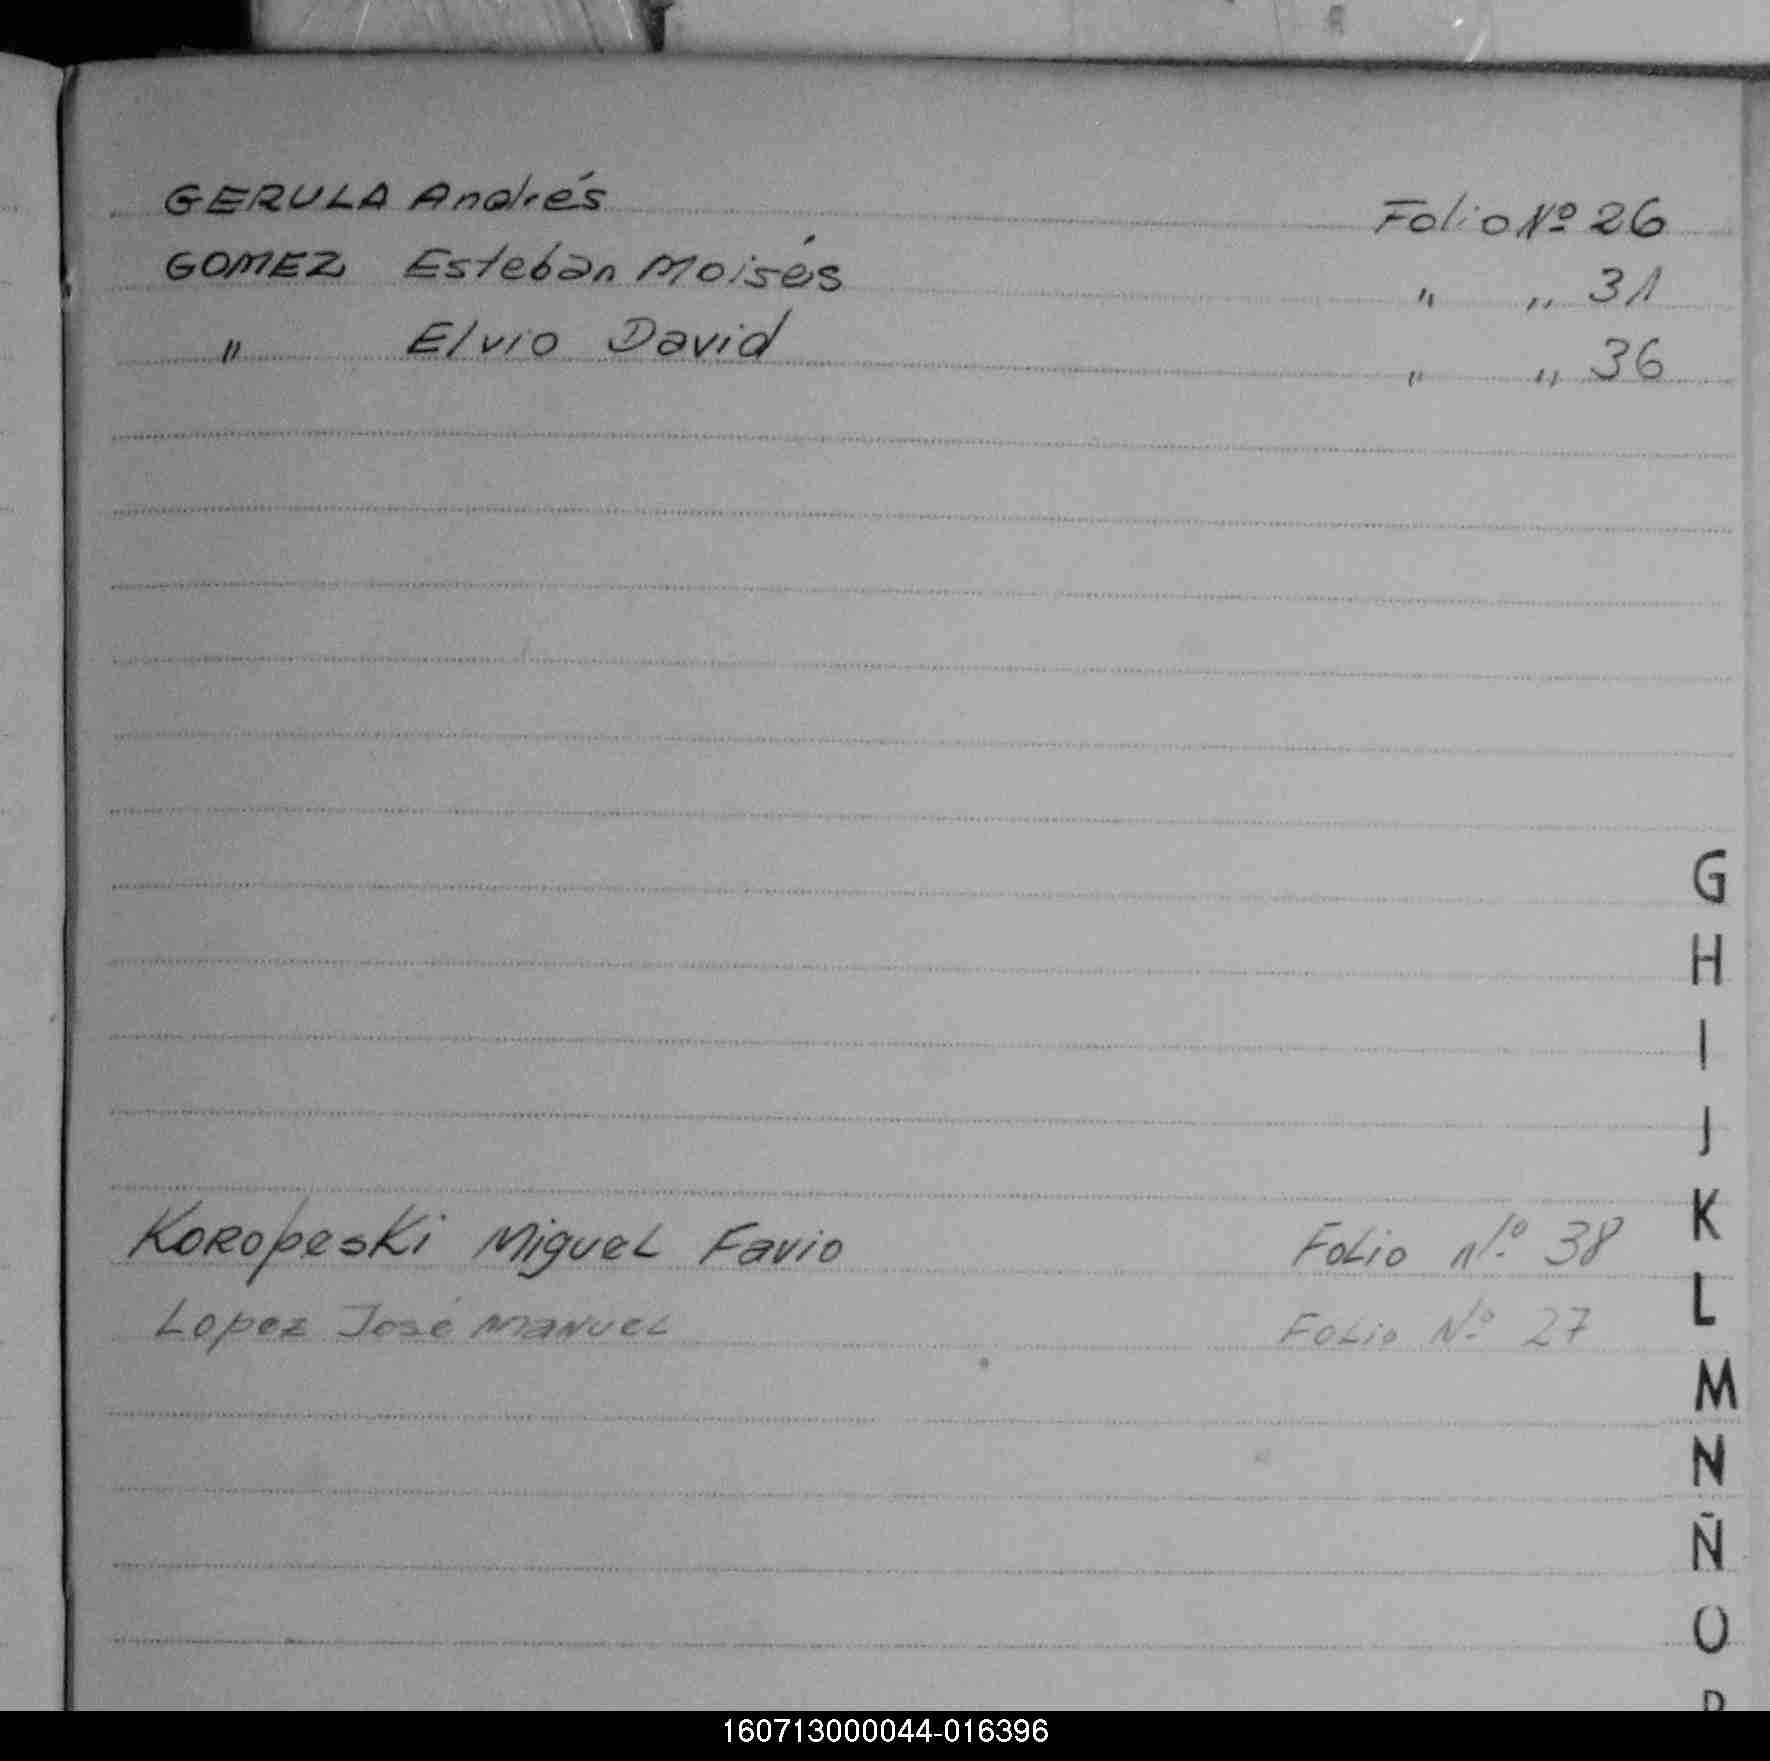 GERULA Andrés Folio Nº 26
GOMEZ Esteban Moisés " " 31
" Elvio David " " 36
G
H
I
J
Koropeski Miguel Favio Folio Nº 38
K
Lopez José Manuel Folio Nº 27
L
M
N
Ñ
O
P
160713000044-016396